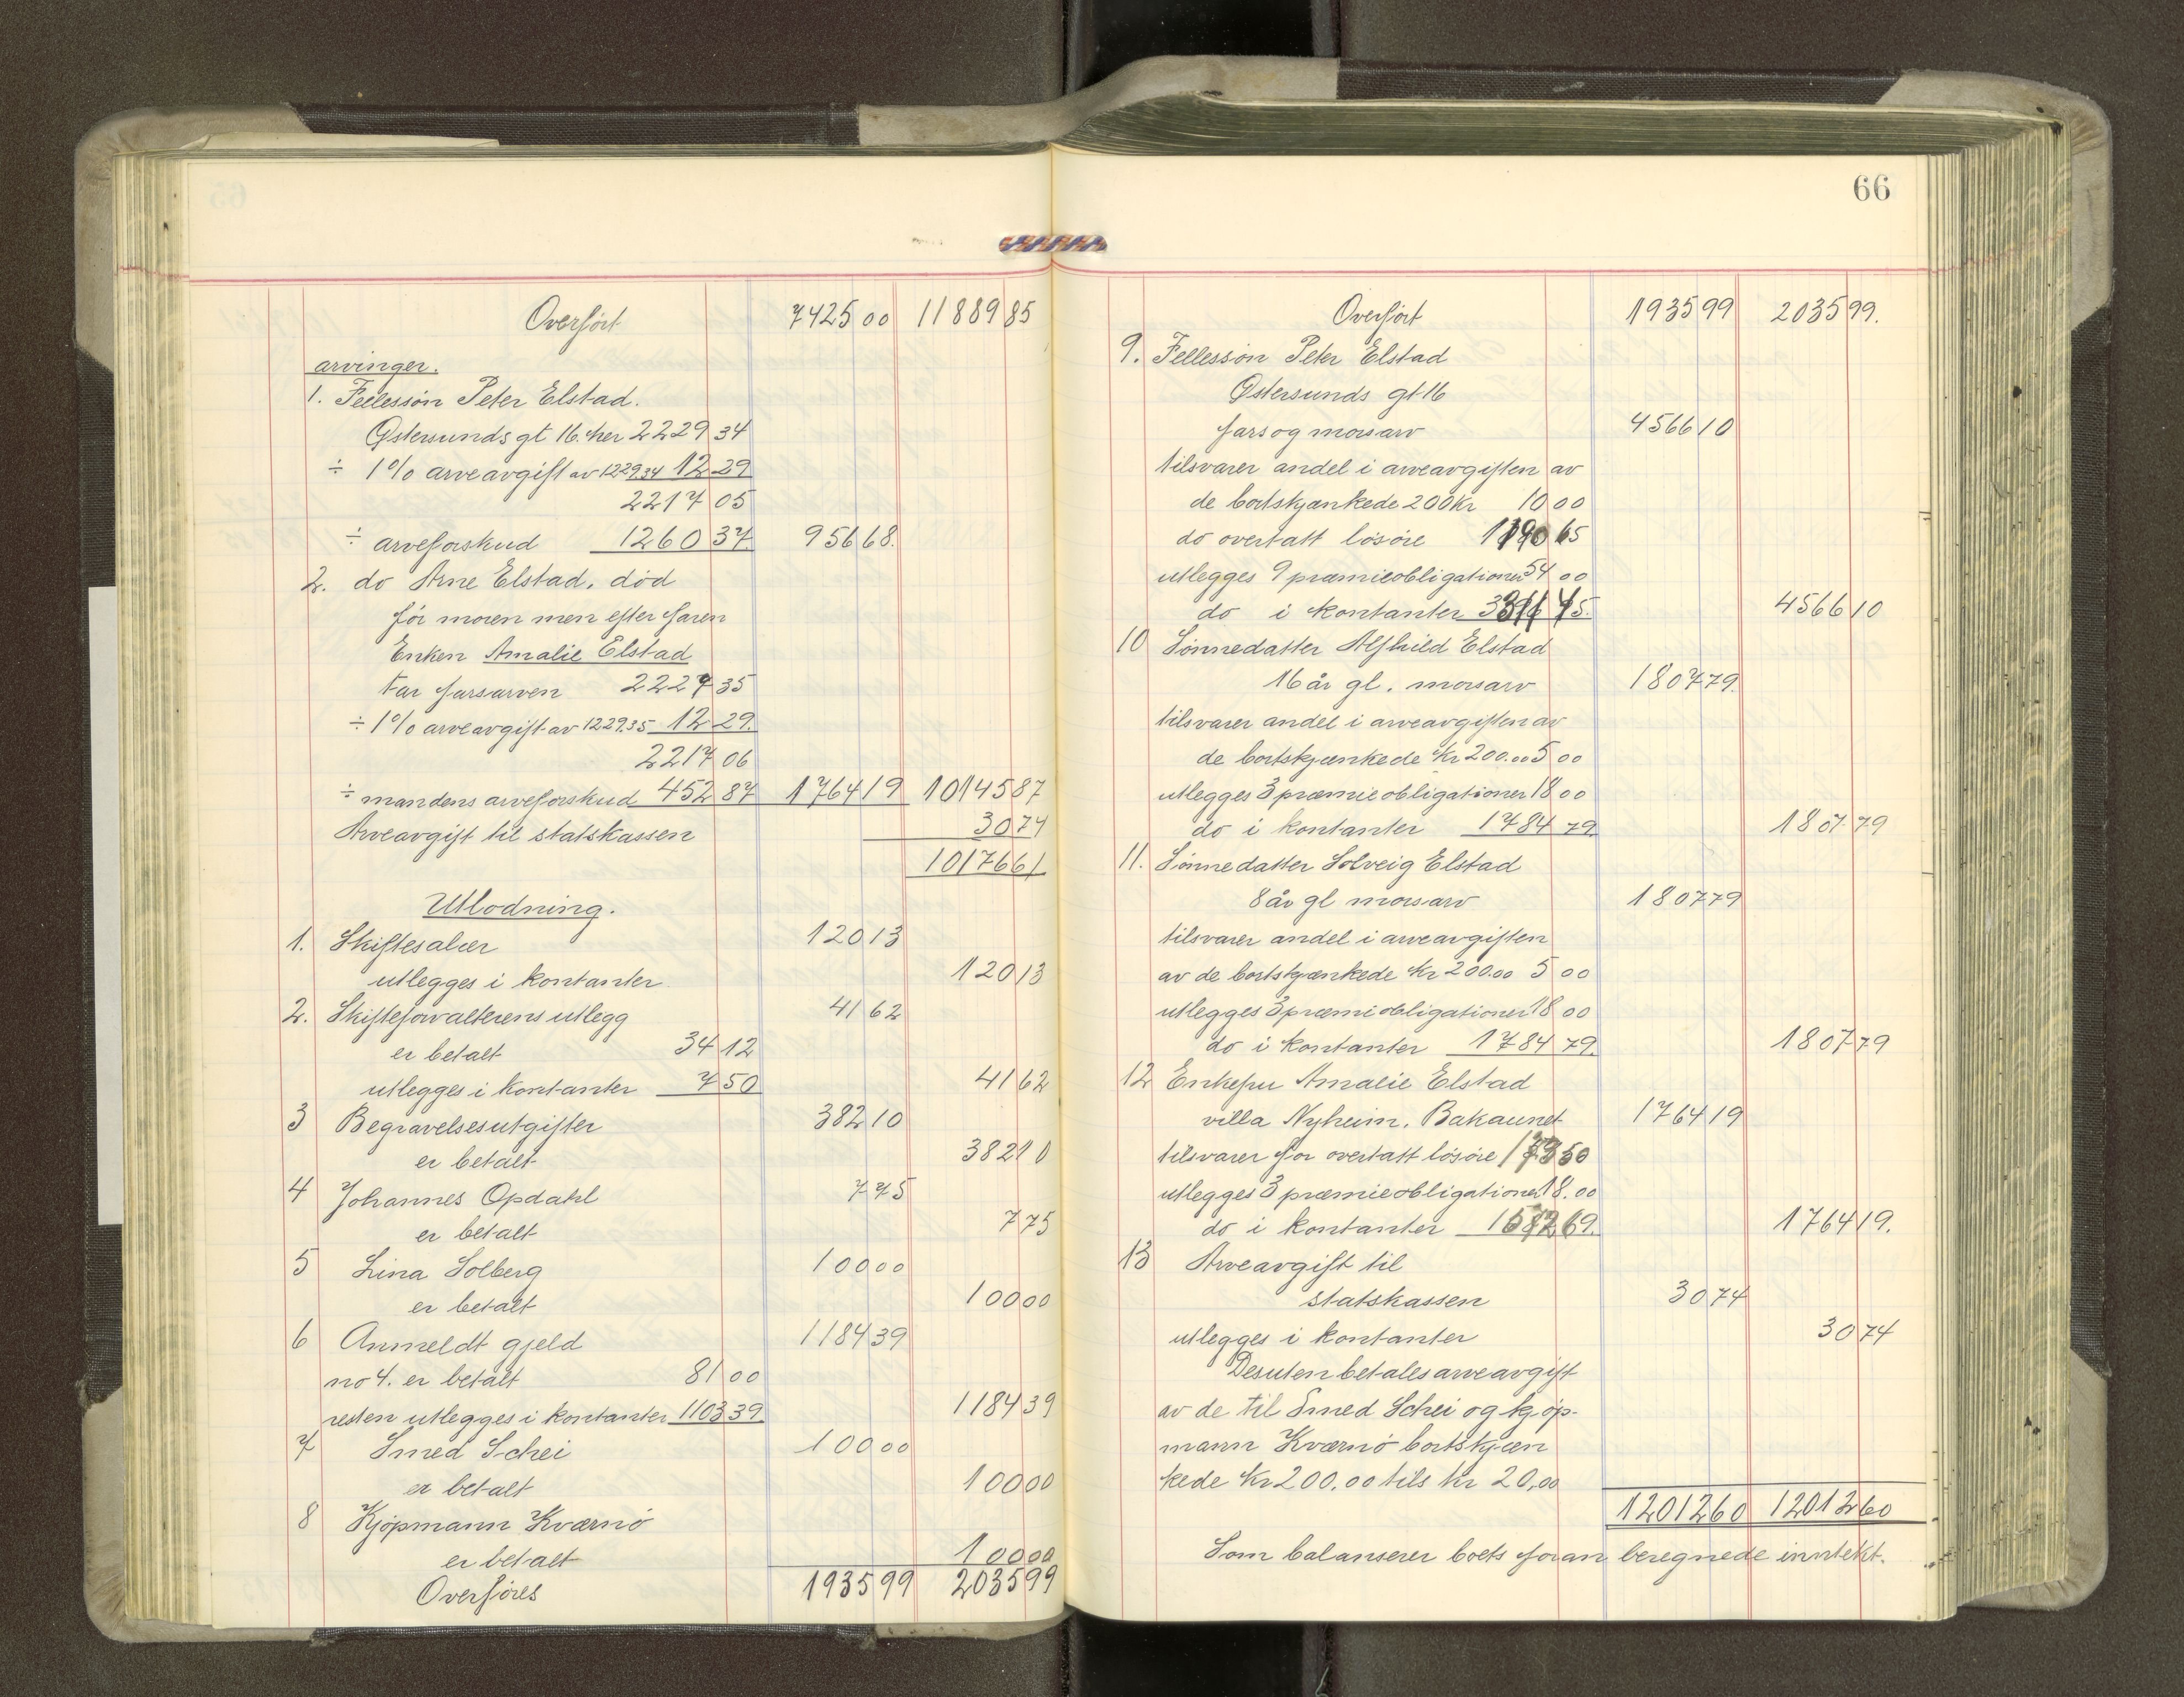 66
Overført 7425 00 11889 85
arvinger.
1. Fellessøn Peter Elstad.
Østersunds gt 16. her 2229 34
÷ 1% arveavgift av 1229.34 12 29
2217 05
÷ arveforskud 1260 37 956 68.
2. do Arne Elstad, død
før moren men efter faren
Enken Amalie Elstad
tar farsarven 2229 35
÷ 1% arveavgift av 1229.35 12 29.
2217 06
÷ mandens arveforskud 452 87 1764 19 10145 87
Arveavgift til statskassen 30 74
10176 61
Utlodning.
1. Skiftesalær 120 13
utlegges i kontanter 120 13
2. Skifteforvalterens utlegg 41 62
er betalt 34 12
utlegges i kontanter 7 50 41 62
3 Begravelsesutgifter 382 10
er betalt 382 10
4 Johannes Opdahl 7 75
er betalt 7 75
5 Lina Solberg 100 00
er betalt 100 00
6 Anmeldt gjeld 1184 39
no 4. er betalt 81 00
resten utlegges i kontanter 1103 39 1184 39
7 Smed Schei 100 00
er betalt 100 00
8 Kjøpmann Kværnø
er betalt 100 00
Overføres 1935 99 2035 99
Overført 1935 99 2035 99.
9. Fellessøn Peter Elstad
Østersunds gt 16
fars og morsarv 4566 10
tilsvarer andel i arveavgiften av
de bortskjænkede 200 Kr 10 00
do overtatt løsøre
utlegges 9 præmieobligationer 54 00
do i kontanter 4566 10
10 Sønnedatter Alfhild Elstad
16 år gl. morsarv 1807 79.
tilsvarer andel i arveavgiften av
de bortskjænkede Kr 200.00 5 00
utlegges 3 præmieobligationer 18 00
do i kontanter 1784 79. 1807.79
11. Sønnedatter Solveig Elstad
8 år gl morsarv 1807 79
tilsvarer andel i arveavgiften
av de bortskjænkede Kr 200.00 5 00
utlegges 3 præmiobligationer 18 00
do i kontanter 1784 79. 1807 79
12 Enkefru Amalie Elstad
villa Nyheim, Bakaunet 1764 19
tilsvarer for overtatt løsøre
utlegges 3 præmieobligationer 18.00
do i kontanter 1764 19.
13 Arveavgift til
statskassen 30 74
utlegges i kontanter 30 74
Desuten betales arveavgift
av de til Smed Schei og kjøp-
mann Kværnø bortskjæn
kede Kr 200,00 tils kr 20,00
12012 60 12012 60
Som balanserer boets foran beregnede inntekt.